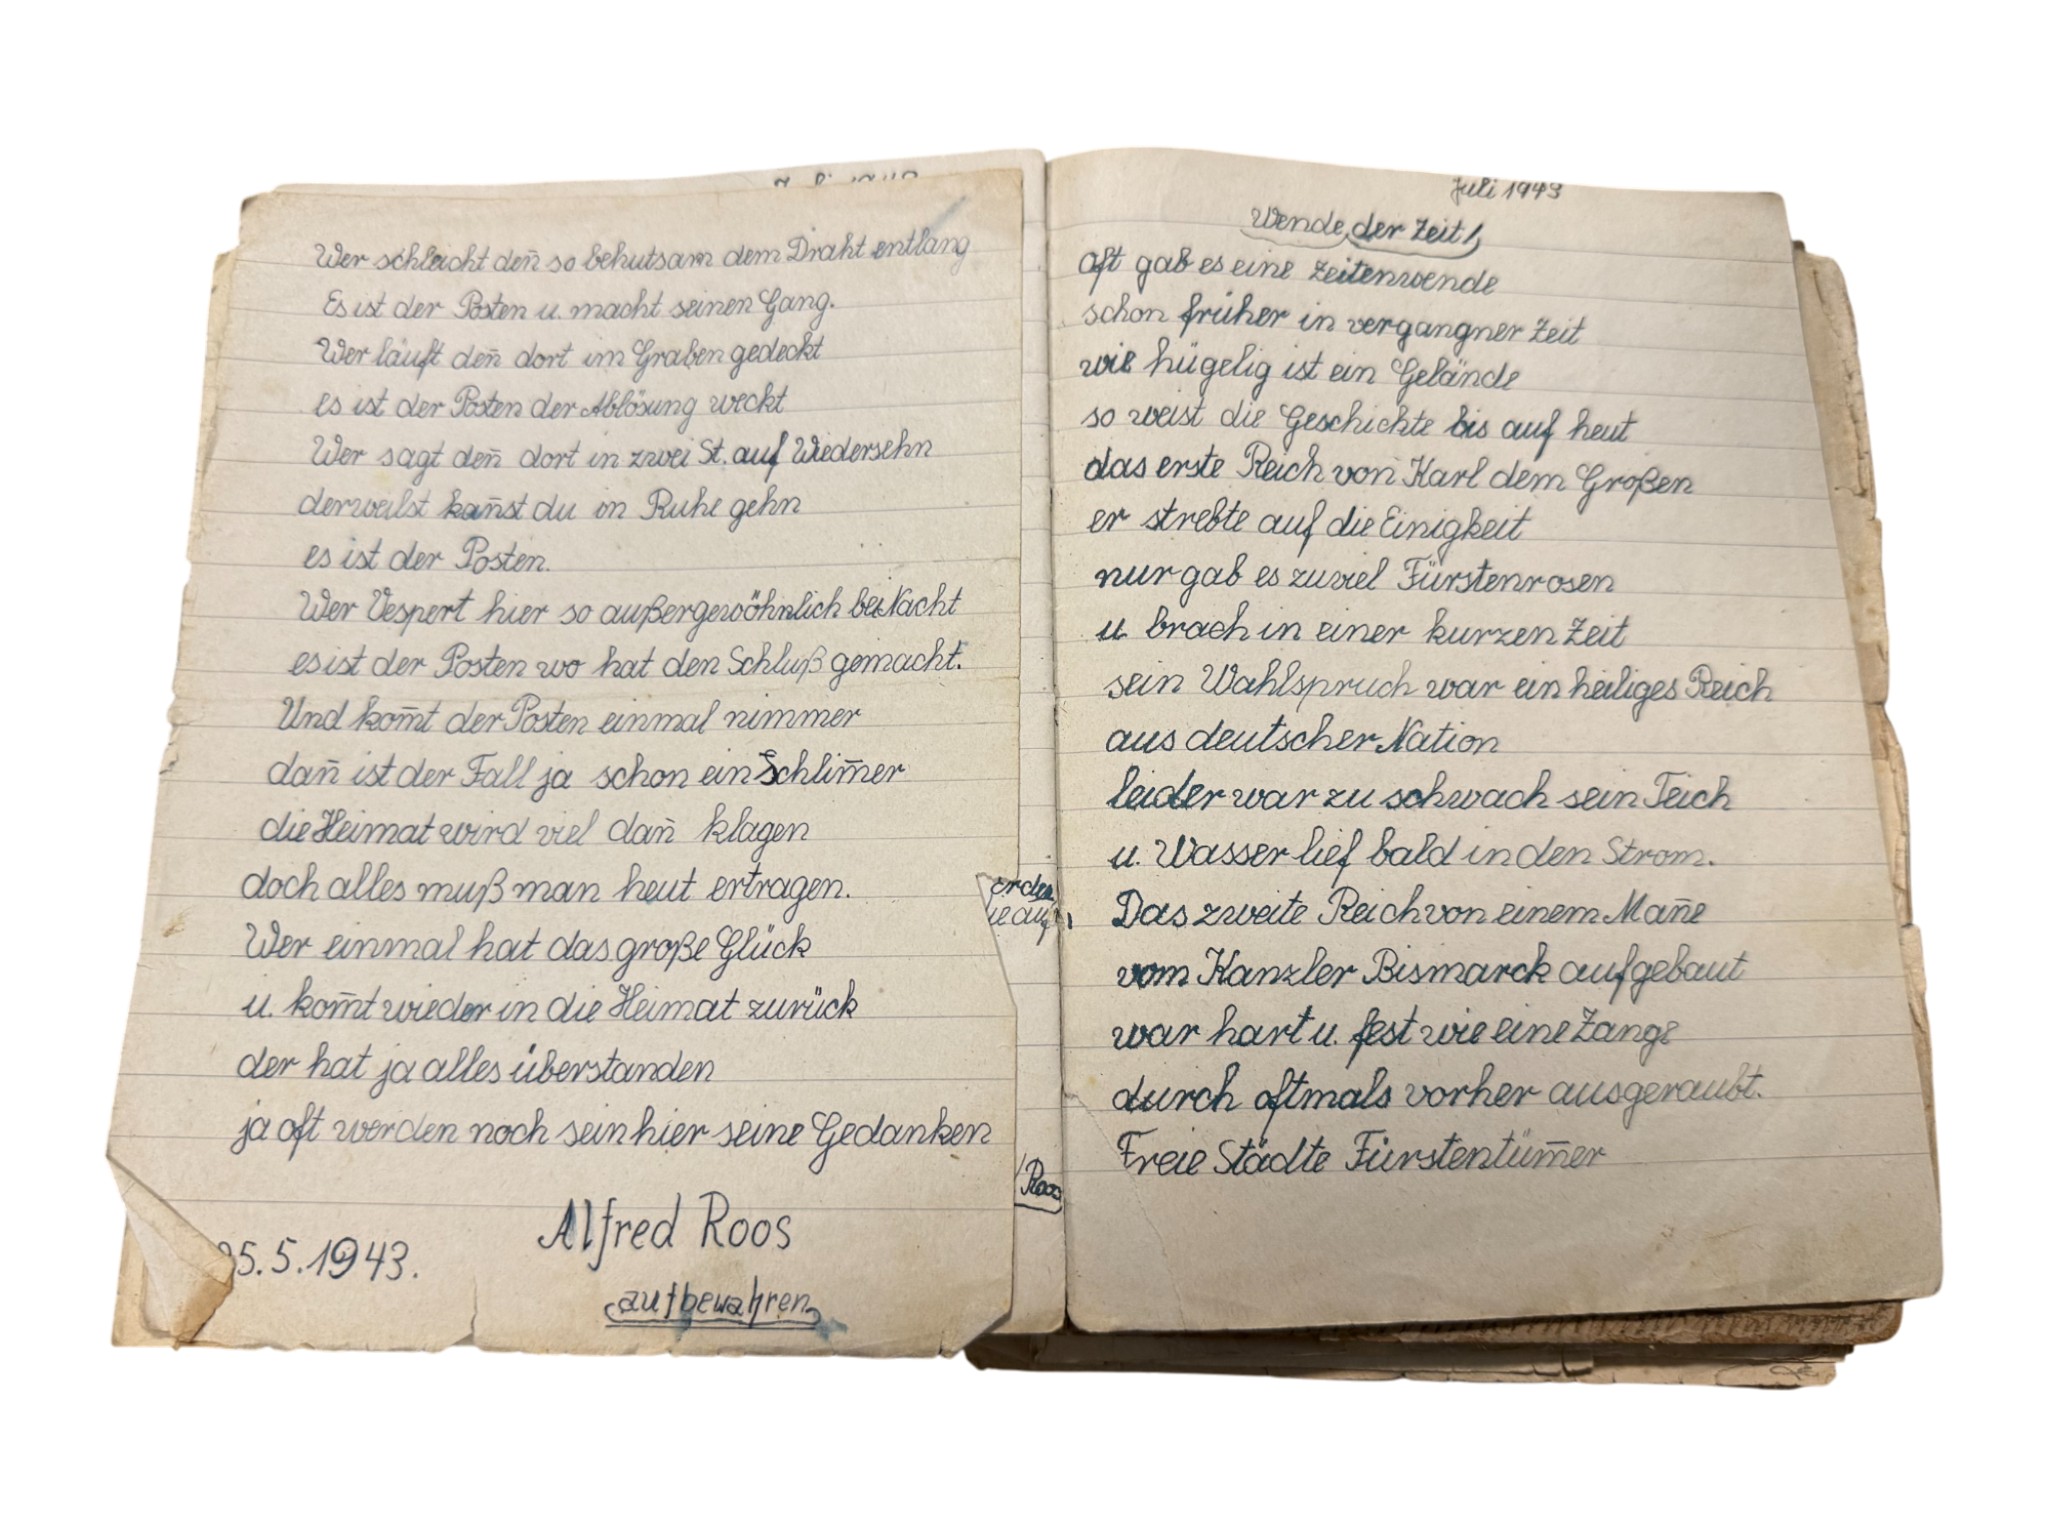 Wer schleicht den̄ so behutsam dem Draht entlang
Es ist der Posten u. macht seinen Gang.
Wer läuft den̄ dort im Graben gedeckt
es ist der Posten der Ablösung weckt
Wer sagt den̄ dort in zwei St. auf Wiedersehn
derweilst kan̄st du in Ruhe gehn
es ist der Posten.
Wer Vespert hier so außergewöhnlich bei Nacht
es ist der Posten wo hat den Schluß gemacht.
Und kom̄t der Posten einmal nimmer
dan̄ ist der Fall ja schon ein Schlim̄er
die Heimat wird viel dan̄ klagen
doch alles muß man heut ertragen.
Wer einmal hat das große Glück
u. kom̄t wieder in die Heimat zurück
der hat ja alles überstanden
ja oft werden noch sein hier seine Gedanken
Alfred Roos
5.5.1943.
aufbewahren
Roos
Juli 1943
Wende der Zeit!
oft gab es eine Zeitenwende
schon früher in vergangner Zeit
wie hügelig ist ein Gelände
so weist die Geschichte bis auf heut
das erste Reich von Karl dem Großen
er strebte auf die Einigkeit
nur gab es zuviel Fürstenrosen
u. brach in einer kurzen Zeit
sein Wahlspruch war ein heiliges Reich
aus deutscher Nation
leider war zu schwach sein Teich
u. Wasser lief bald in den Strom.
Das zweite Reich von einem Man̄e
vom Kanzler Bismarck aufgebaut
war hart u. fest wie eine Zange
durch oftmals vorher ausgeraubt.
Freie Städte Fürstentüm̄er